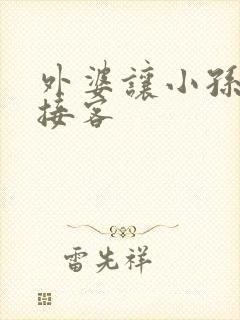 外婆讓小孫
接客
雷先祥